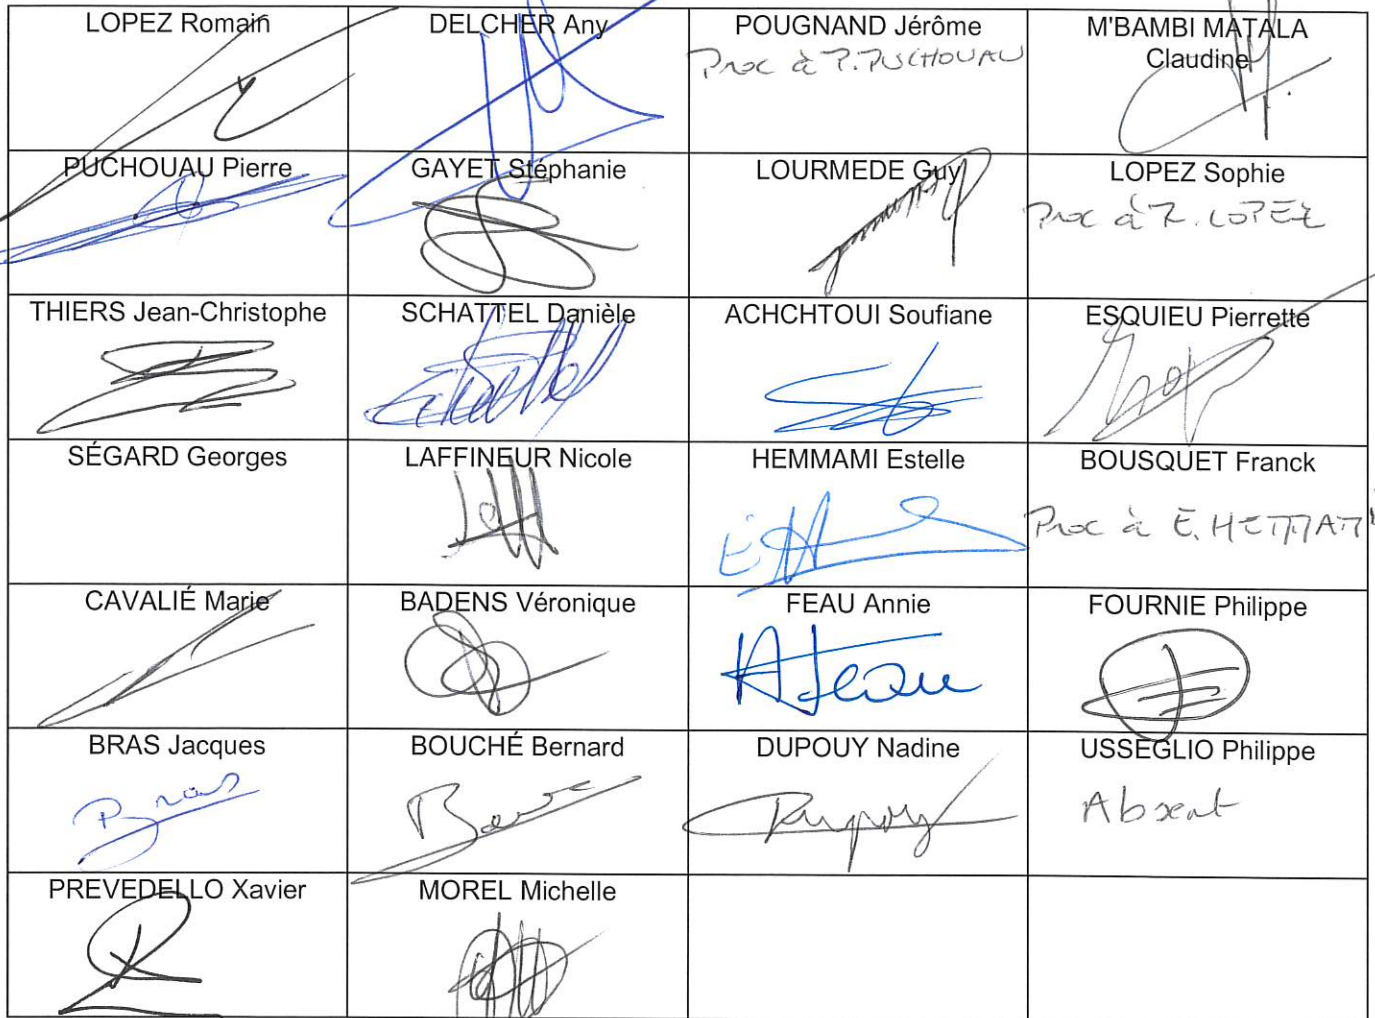 LOPEZ Romain
DELCHER Any
POUGNAND Jérôme
Proc à P. PUCHOUAU
M'BAMBI MATALA
Claudine
PUCHOUAU Pierre
GAYET Stéphanie
LOURMEDE Guy
LOPEZ Sophie
Proc à R. LOPEZ
THIERS Jean-Christophe
SCHATTEL Danièle
ACHCHTOUI Soufiane
ESQUIEU Pierrette
SÉGARD Georges
LAFFINEUR Nicole
HEMMAMI Estelle
BOUSQUET Franck
Proc à E. HEMMAMI
CAVALIÉ Marie
BADENS Véronique
FEAU Annie
A Feau
FOURNIE Philippe
BRAS Jacques
Bras
BOUCHÉ Bernard
DUPOUY Nadine
Dupouy
USSEGLIO Philippe
Absent
PREVEDELLO Xavier
MOREL Michelle